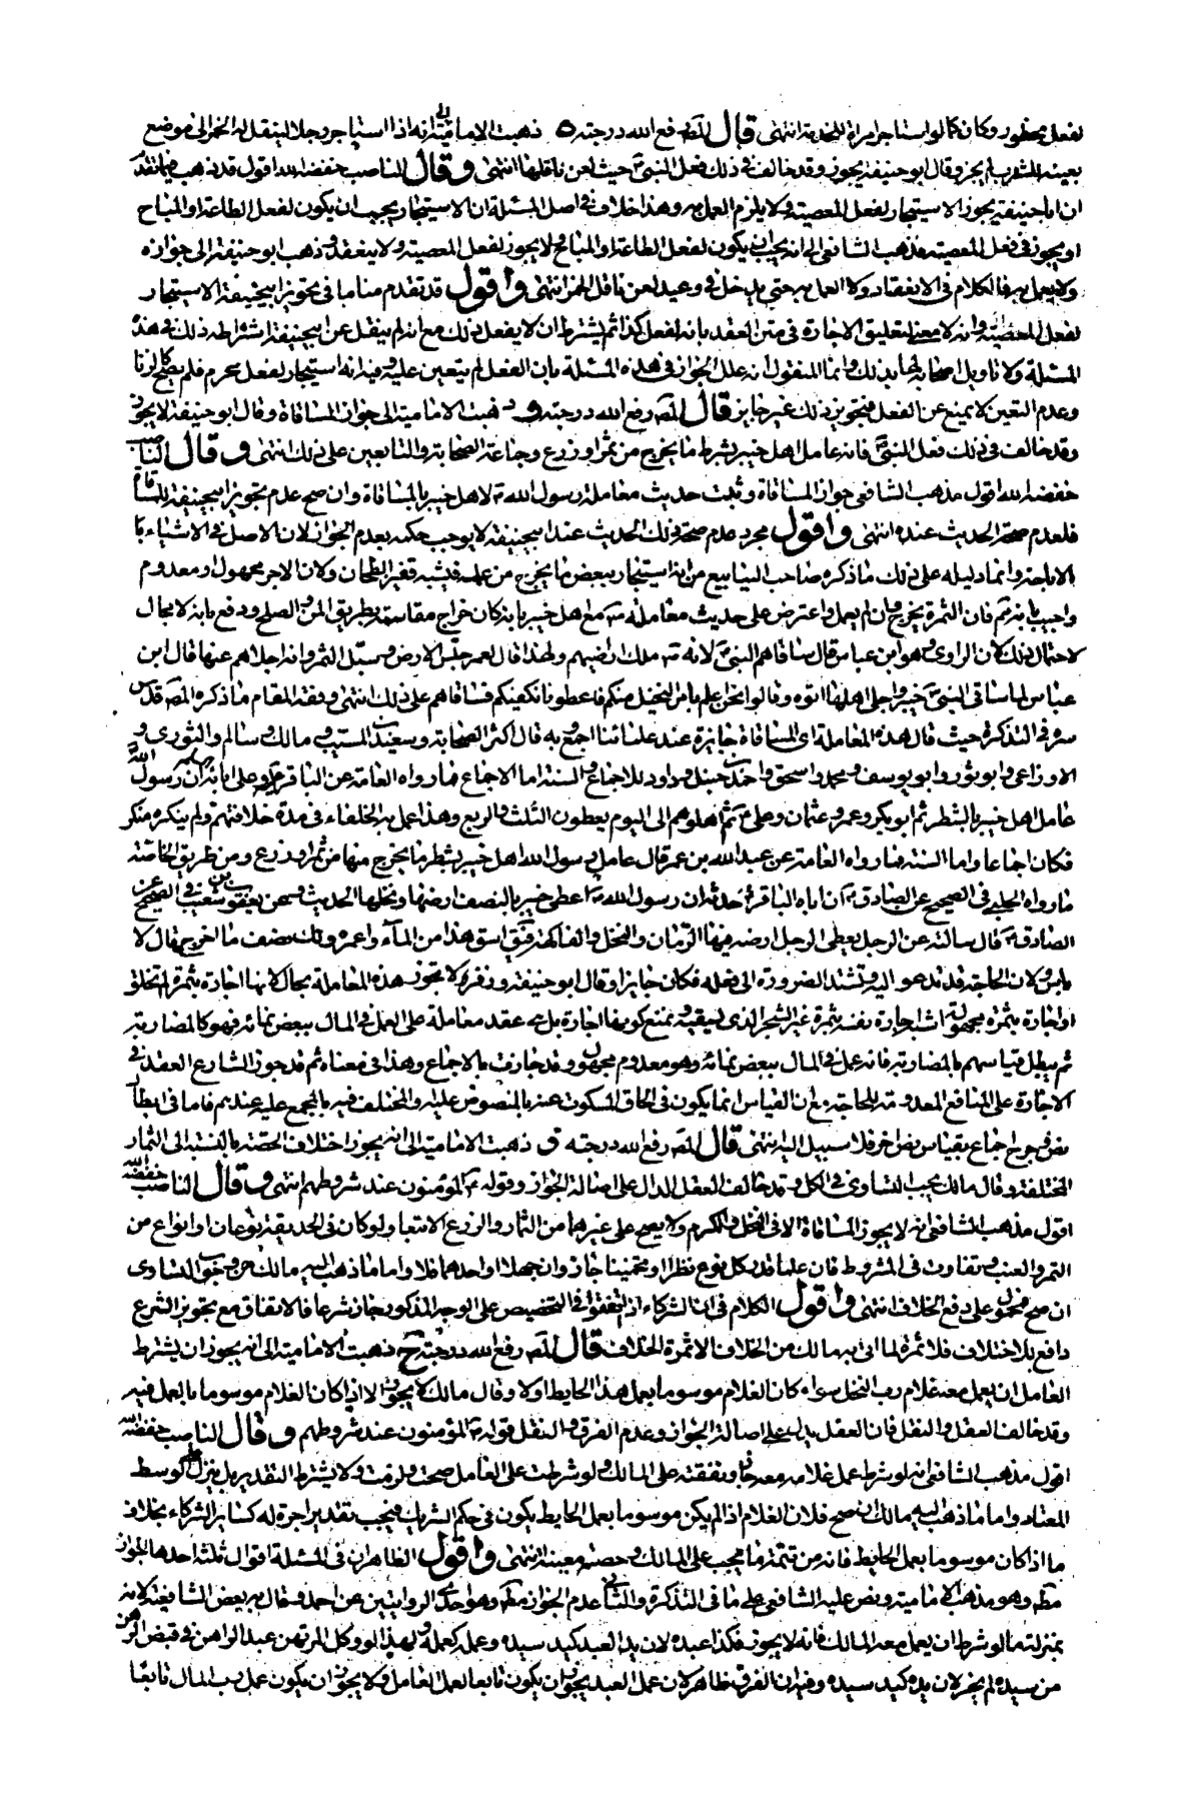 لفعل محظور وكان كما لو استاجر امراة للخدمة انتهى قال المصـ رفع الله درجته ه ذهبت الامامية الى انه اذا استاجر رجلا لينقل له الخمر الى موضع
بعينه للشرب لم يجز وقال ابو حنيفة يجوز وقد خالف في ذلك فعل النبي ص حيث لعن ناقلها انتهى وقال الناصب خفضه الله اقول قد ذهب فيما تقدم
ان ابا حنيفة يجوز الاستيجار لفعل المعصية ولا يلزم العمل به وهذا خلاف في اصل المسئلة ان الاستيجار يجب ان يكون لفعل الطاعة او المباح
او يجوز في فعل المعصية فذهب الشافعي الى انه يجب ان يكون لفعل الطاعة او المباح ولا يجوز لفعل المعصية ولا ينعقد وذهب ابو حنيفة الى جوازه
ولا يعمل به فالكلام في الانعقاد ولا العمل به حتى يدخل في وعيد لعن ناقل الخمر انتهى واقول قد تقدم منا ما في تجويز ابيحنيفة الاستيجار
لفعل المعصية وانه لا معنى لتعليق الاجارة في متن العقد بانه لفعل كذا ثم يشترط ان لا يفعل ذلك مع انه لم ينقل عن ابيحنيفة اشتراطه ذلك في هذه
المسئلة ولا تاويل اصحابه لها بذلك وانما المنقول انه علل الجواز في هذه المسئلة بان الفعل لم يتعين عليه وفيه انه استيجار لفعل محرم فلم يصح كالزنا
وعدم التعين لا يمنع عن الفعل فتجويز ذلك غير جايز قال المصـ رفع الله درجته و ذهبت الامامية الى جواز المساقاة وقال ابو حنيفة لا يجوز
وقد خالف في ذلك فعل النبي ص فانه عامل اهل خيبر بشرط ما يخرج من ثمر او زرع وجماعة الصحابة والتابعين على ذلك انتهى وقال الناصب
خفضه الله اقول مذهب الشافعي جواز المساقاة وثبت حديث معاملة رسول الله ص لاهل خيبر بالمساقاة وان صح عدم تجويز ابيحنيفة للمساقاة
فلعدم صحة الحديث عنده انتهى واقول مجرد عدم صحة ذلك الحديث عند ابيحنيفة لا يوجب حكمه بعدم الجواز لان الاصل في الاشياء
الاباحة وانما دليله على ذلك ما ذكره صاحب الينابيع من انه استيجار ببعض ما يخرج من عمله فيشبه قفيز الطحان ولان الاجر مجهول او معدوم
واجيب بانه ثم فان الثمرة يخرج وان لم يعمل واعترض على حديث معاملته ص مع اهل خيبر بانه كان خراج مقاسمة بطريق المن والصلح ودفع بانه لا مجال
لاحتمال ذلك لان الراوي وهو ابن عباس قال ساقاهم النبي ص لانه ص ملك اراضيهم ولهذا قال لعمر حبس الارض وسبّل الثمر وانه اجلاهم عنها قال ابن
عباس لما ساقى النبي ص خيبر واجلى اهلها اتوه وقالوا نحن اعلم بامر النخيل منكم فاعطونا نكفيكم فساقاهم على ذلك انتهى وتفقة المقام ما ذكره المصـ قدس
سره في التذكرة حيث قال هذه المعاملة اي المساقاة جايزة عند علمائنا اجمع وبه قال اكثر الصحابة وسعيد بن المسيب ومالك وسالم والثوري و
الاوزاعي وابو ثور وابو يوسف ومحمد واسحق واحمد بن حنبل وداود للاجماع والسنة اما الاجماع فما رواه العامة عن الباقر عليه وعلى ابائه ان رسول الله
عامل اهل خيبر بالشطر ثم ابو بكر وعمر وعثمان وعلي ع ثم اهلوهم الى اليوم يعطون الثلث والربع وهذا عمل به الخلفاء في مدة خلافتهم ولم ينكره منكر
فكان اجماعا واما السنة فما رواه العامة عن عبد الله بن عمر قال عامل رسول الله اهل خيبر بشطر ما يخرج منها من ثمر او زرع ومن طريق الخاصة
ما رواه الحلبي في الصحيح عن الصادق ع ان اباه الباقر ع حدثه ان رسول الله ص اعطى خيبر بالنصف ارضها ونخلها الحديث وعن يعقوب بن شعيب في الصحيح عن
الصادق ع قال سالته عن الرجل يعطي الرجل ارضه فيها الرمان والنخل والفاكهة فيقول اسق هذا من الماء واعمره ولك نصف ما اخرج قال لا
باس ولان الحاجة قد تدعو اليه وتشتد الضرورة الى فعله فكان جايزا وقال ابو حنيفة وزفر لا تجوز هذه المعاملة بحال لانها اجارة بثمرة لم تخلق
او اجارة بثمرة مجهولة اشبه اجارة نفسه بثمرة غير الشجر الذي يسقيه ونمنع كونها اجارة بل هي عقد معاملة على العمل في المال ببعض نمائه فهو كالمضاربة
ثم يبطل قياسهم بالمضاربة فانه عمل في المال ببعض نمائه وهو معدوم مجهول وقد جازت بالاجماع وهذا في معناه ثم قد جوز الشارع العقد في
الاجارة على المنافع المعدومة للحاجة مع ان القياس انما يكون في الحاق المسكوت عنه بالمنصوص عليه والمختلف فيه بالمجمع عليه عندهم فاما في ابطال
نص وخرج اجماع بقياس نص اخر فلا سبيل اليه انتهى قال المصـ رفع الله درجته ق ذهبت الامامية الى انه يجوز اختلاف الحصة بالنسبة الى الثمار
المختلفة وقال مالك يجب التساوي في الكل وقد خالف العقل الدال على اصالة الجواز وقوله ع المؤمنون عند شروطهم انتهى وقال الناصب خفضه الله
اقول مذهب الشافعي انه لا يجوز المساقاة الا في النخل والكرم ولا يصح على غيرهما من الثمار والزرع الا تبعا ولو كان في الحديقة نوعان او انواع من
التمر والعنب وتفاوت في المشروط فان علما قدر كل نوع نظرا او تخمينا جاز وان جهلا او احدهما فلا واما ما ذهب اليه مالك من وجوب التساوي
ان صح فمحمول على دفع الخلاف انتهى واقول الكلام في ان الشركاء اذا اتفقوا في التخصيص على الوجه المذكور جاز شرعا فالاتفاق مع تجويز الشرع
دافع للاختلاف فلا ثمرة لما اتى به مالك من الخلاف الا ثمرة الخلاف قال المصـ رفع الله درجته ح ذهبت الامامية الى انه يجوز ان يشترط
العامل ان يعمل معه غلام رب النخل سواء كان الغلام موسوما بعمل هذا الحايط اولا وقال مالك لا يجوز الا اذا كان الغلام موسوما بالعمل فيه
وقد خالف العقل والنقل فان العقل يدل على اصالة الجواز وعدم الفرق والنقل قوله ص المؤمنون عند شروطهم وقال الناصب خفضه الله
اقول مذهب الشافعي انه لو شرط عمل غلامه معه جاز ونفقته على المالك ولو شرطت على العامل صحت ولزمت ولا يشترط التقدير بل ينزل على الوسط
المعتاد واما ما ذهب اليه مالك ان صح فلان الغلام اذا لم يكن موسوما بعمل الحايط يكون في حكم الشريك فيجب تقدير اجرة له كساير الشركاء بخلاف
ما اذا كان موسوما بعمل الحايط فانه من تتمة ما يجب على المالك وحصته معينة انتهى واقول الظاهر ان في المسئلة اقوال ثلثة احدها الجواز
مطـ وهو مذهب الامامية ونص عليه الشافعي على ما في التذكرة والثاني عدم الجواز مطـ وهو احدى الروايتين عن احمد وقال به بعض الشافعية لانه
بمنزلة ما لو شرط ان يعمل معه المالك فانه لا يجوز فكذا عبده لان يد العبد كيد سيده وعمله كعمله ولهذا لو وكل المرتهن عبد الراهن في قبض الرهن
من سيده لم يجز لان يده كيد سيده وفيه ان الفرق ظاهر لان عمل العبد يجوز ان يكون تابعا لعمل العامل ولا يجوز ان يكون عمل رب المال تابعا